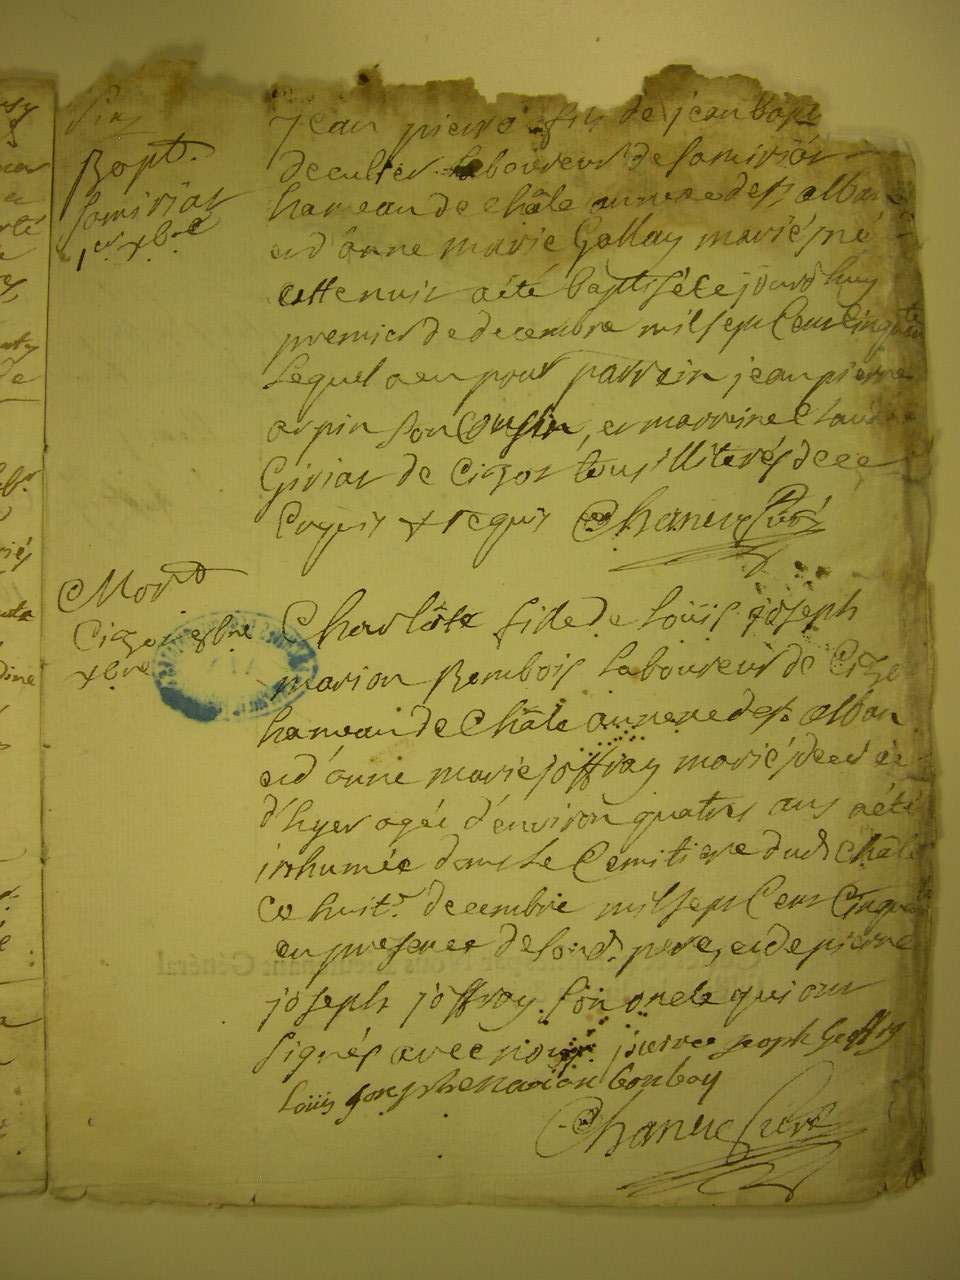 Bapt.
Somirías
1er xbre
Jean pierre fils de jean bapt
decultes laboureur de Somiriás
hameau de Châle annexe de st alban
et d'anne marie Gallay mariés, né
cette nuit a été baptisé ce jourd'huy
premier de decembre mil sept Cent Cinquante
lequel a eu pour parrein jean pierre
arpin son Cousin, et marreine
Girias de Cizos tous illiterés de ce
Enquis & requis Chanue Curé
Mort
xbre
Charlote fille de Loüis joseph
marion Bombois laboureur de Cize
hameau de Châle annexe de st alban
et d'anne marie joffray mariés, decedée
d'hyer agée d'environ quatres ans a été
inhumée dans le Cemitiere dudt Châle
Ce huitr. decembre mil sept Cent Cinquante
en presence de sond. pere, et de pierre
joseph joffray son oncle qui ont
signés avec nous pierre joseph Geoffry
Loüis Josephe Marion bonboy
Chanue Curé